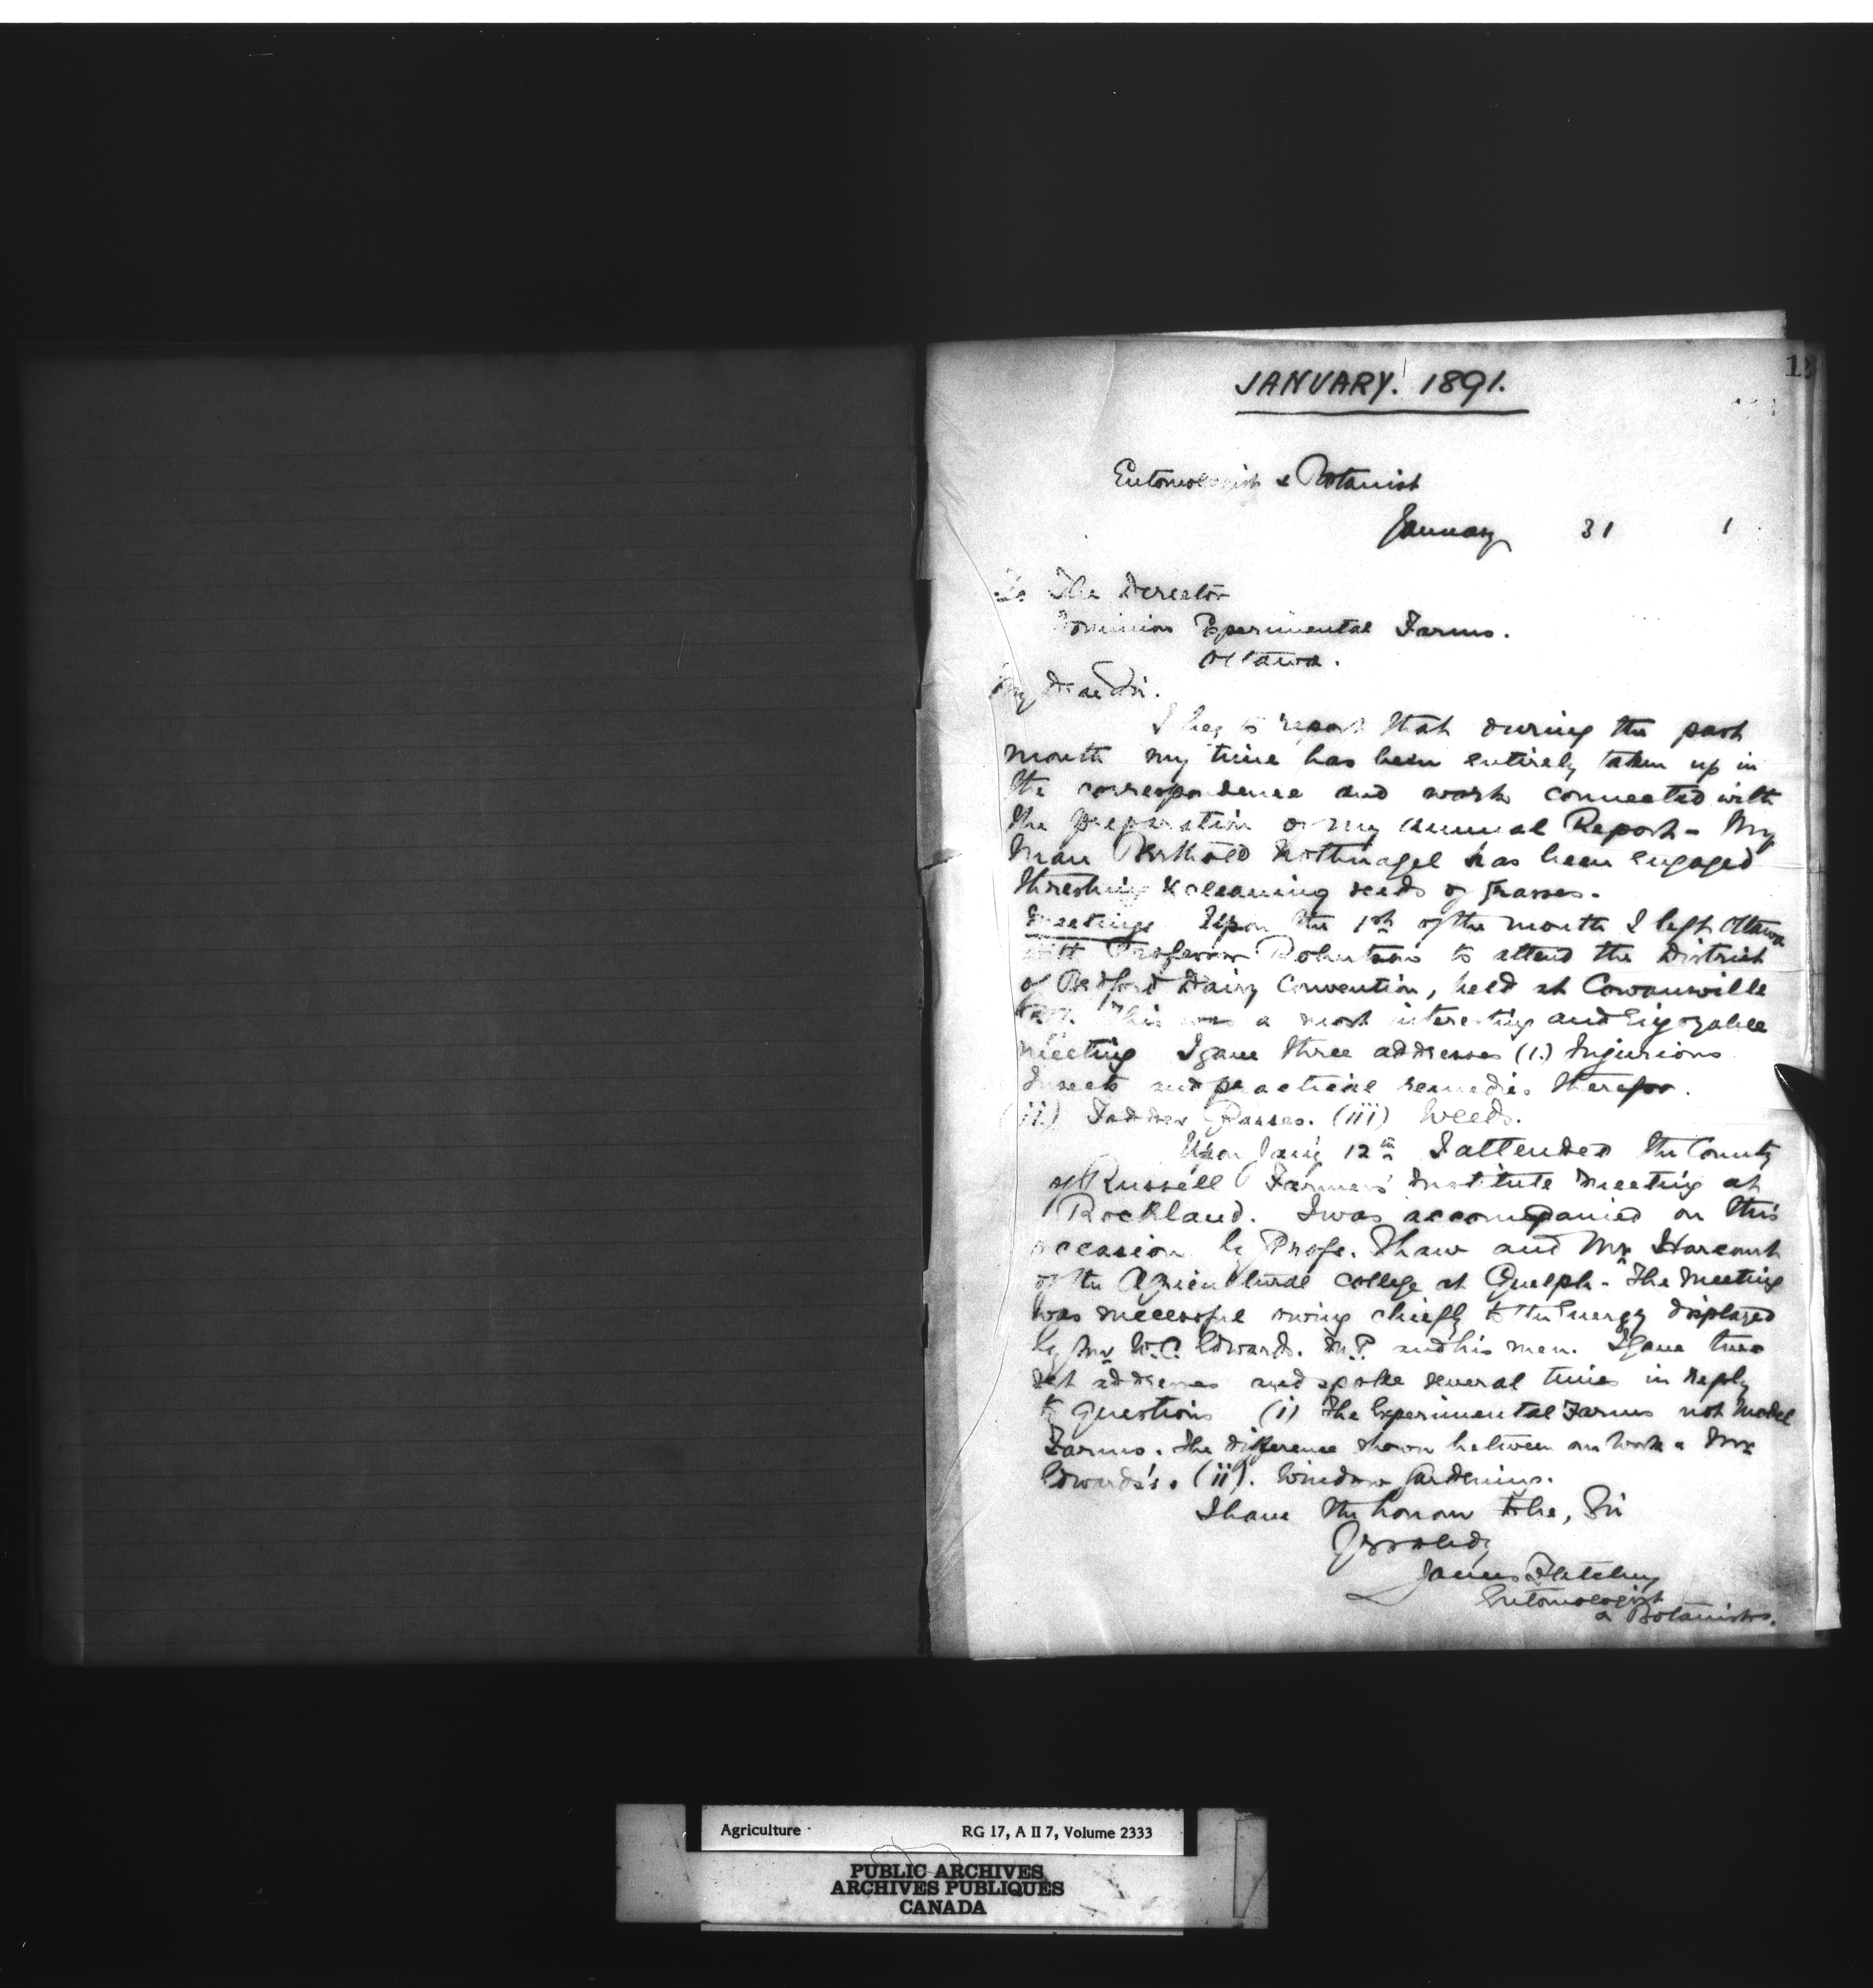 JANUARY. 1891.
Entomologist & Botanist
January 31 1
To The Director
Dominion Experimental Farms.
Ottawa.
My Dear Sir.
I beg to report that during the past
month my time has been entirely taken up in
the correspondence and work connected with
the preparation of my annual Report - My
man Berthold Nothnagel has been engaged
threshing & cleaning seeds of grasses.
Meetings Upon the 1st of the month I left Ottawa
with Professor Robertson to attend the District
of Bedford Dairy Convention, held at Cowansville
This was a most interesting and enjoyable
meeting I gave three addresses (i.) Injurious
Insects and practical remedies therefor.
(ii.) Fodder Grasses. (iii) Weeds.
Upon Jany 12th I attended the County
of Russell Farmers' Institute meeting at
Rockland. I was accompanied on this
occasion by Profr. Shaw and Mr Harcourt
of the Agricultural College at Guelph - The meeting
was successful owing chiefly to the energy displayed
by Mr W.C. Edwards. M.P. and his men. I gave two
set addresses and spoke several times in reply
to questions (i) The Experimental Farms not Model
Farms. The difference shown between our work & Mr
Edwards's. (ii). Window Gardening.
I have the honour to be, Sir
Yrs obedy
James Fletcher
Entomologist
& Botanist.
Agriculture RG 17, A II 7, Volume 2333
PUBLIC ARCHIVES
ARCHIVES PUBLIQUES
CANADA